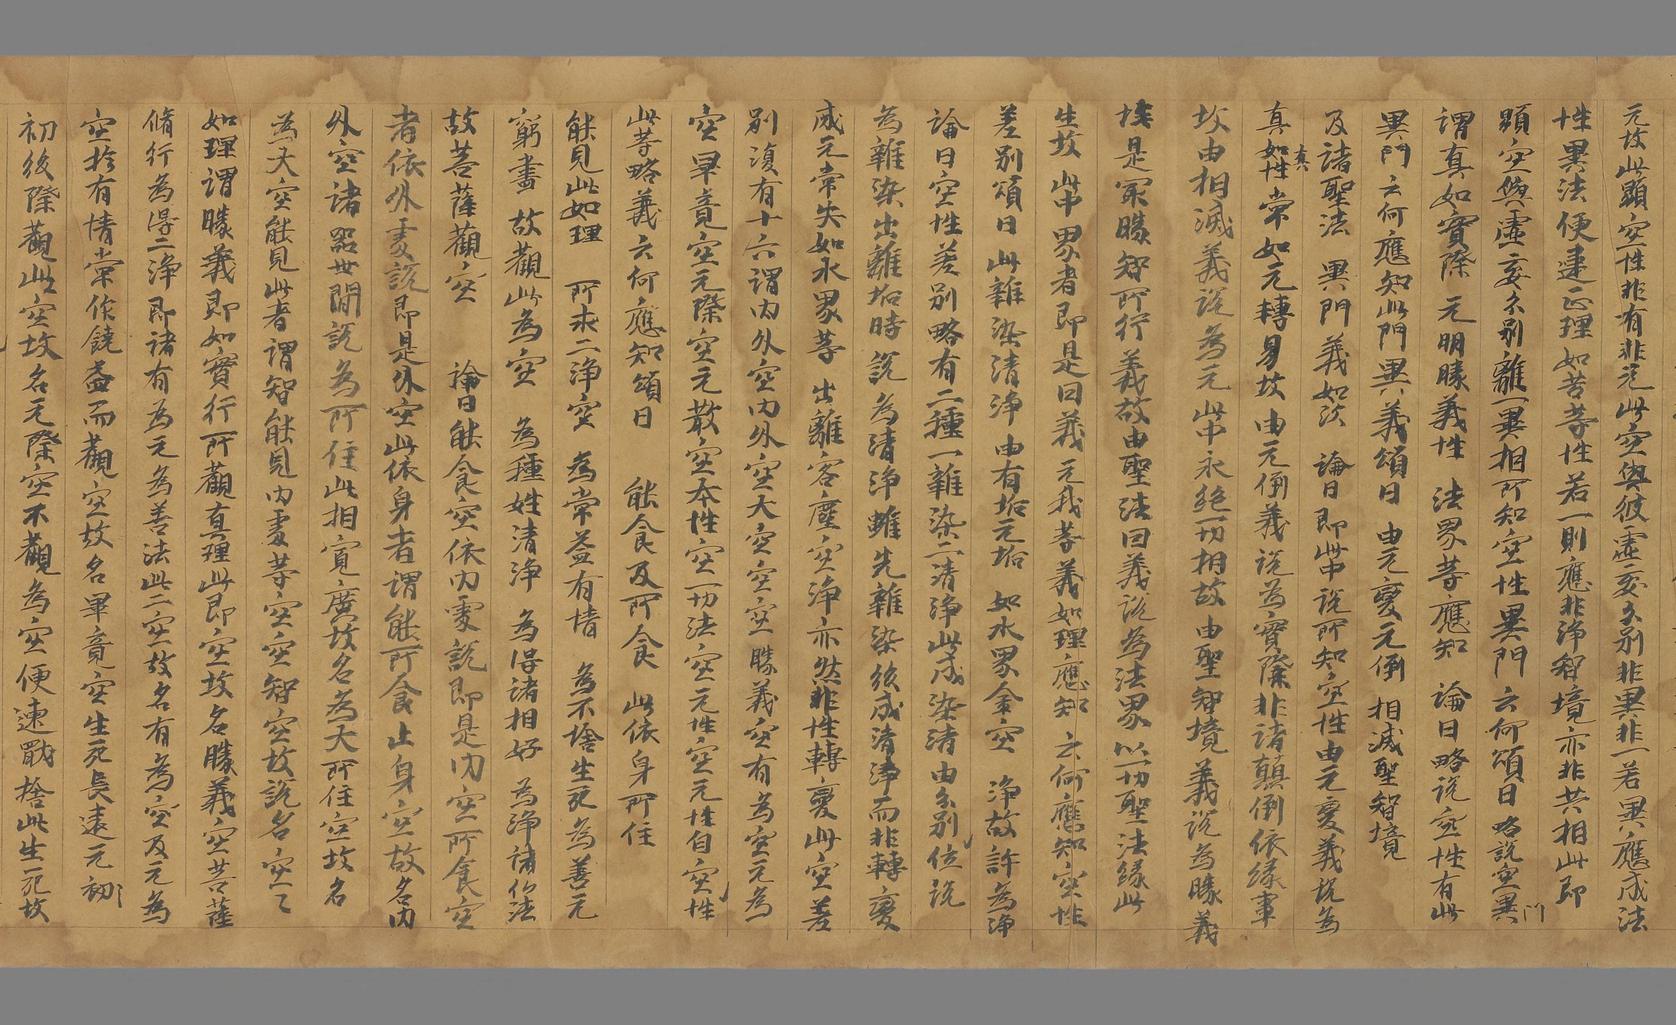 无故此顯空性非有非无此空與彼虛妄分別非異非一若異應成法
性異法便違正理如苦等性若一則應非淨智境亦非共相此即
顯空與虛妄分別離一異相所知空性異門云何頌曰略說空異門
謂真如實際 无明勝義性 法界等應知 論曰略說空性有此
異門云何應知此門異義頌曰 由无變无倒 相滅聖智境
及諸聖法 異門義如次 論曰即此中說所知空性由无變義說為
真如真性常如无轉易故由无倒義說為實際非諸顛倒依緣事
故由相滅義說為无此中永絕一切相故由聖智境義說為勝義
境是最勝智所行義故由聖法因義說為法界以一切聖法緣此
生故此中界者即是因義无我等義如理應知 云何應知空性
差別頌曰 此雜染清淨 由有垢无垢 如水界金空 淨故許為淨
論曰空性差別略有二種一雜染二清淨此成染清由分別位說
為雜染出離垢時說為清淨雖先雜染後成清淨而非轉變
成无常失如水界等 出離客塵空淨亦然非性轉變此空差
別復有十六謂內外空內外空大空空空勝義空有為空无為
空畢竟空无際空无散空本性空一切法空无性空无性自空性
此等略義云何應知頌曰 能食及所食 此依身所住
能見此如理 所求二淨空 為常益有情 為不捨生死 為善无
窮盡 故觀此為空 為種姓清淨 為得諸相好 為淨諸佛法
故菩薩觀空 論曰能食空依內處說即是內空所食空
者依外處說即是外空此依身者謂能所食止身空故名內
外空諸器世間說為所住此相寬廣故名為大所住空故名
為大空能見此者謂智能見內處等空空智空故說名空〻
如理謂勝義即如實行所觀真理此即空故名勝義空菩薩
脩行為得二淨即諸有為无為善法此二空故名有為空及无為
空於有情常作饒益而觀空故名畢竟空生死長遠无初
初後際觀此空故名无際空不觀為空便速厭捨此生死故